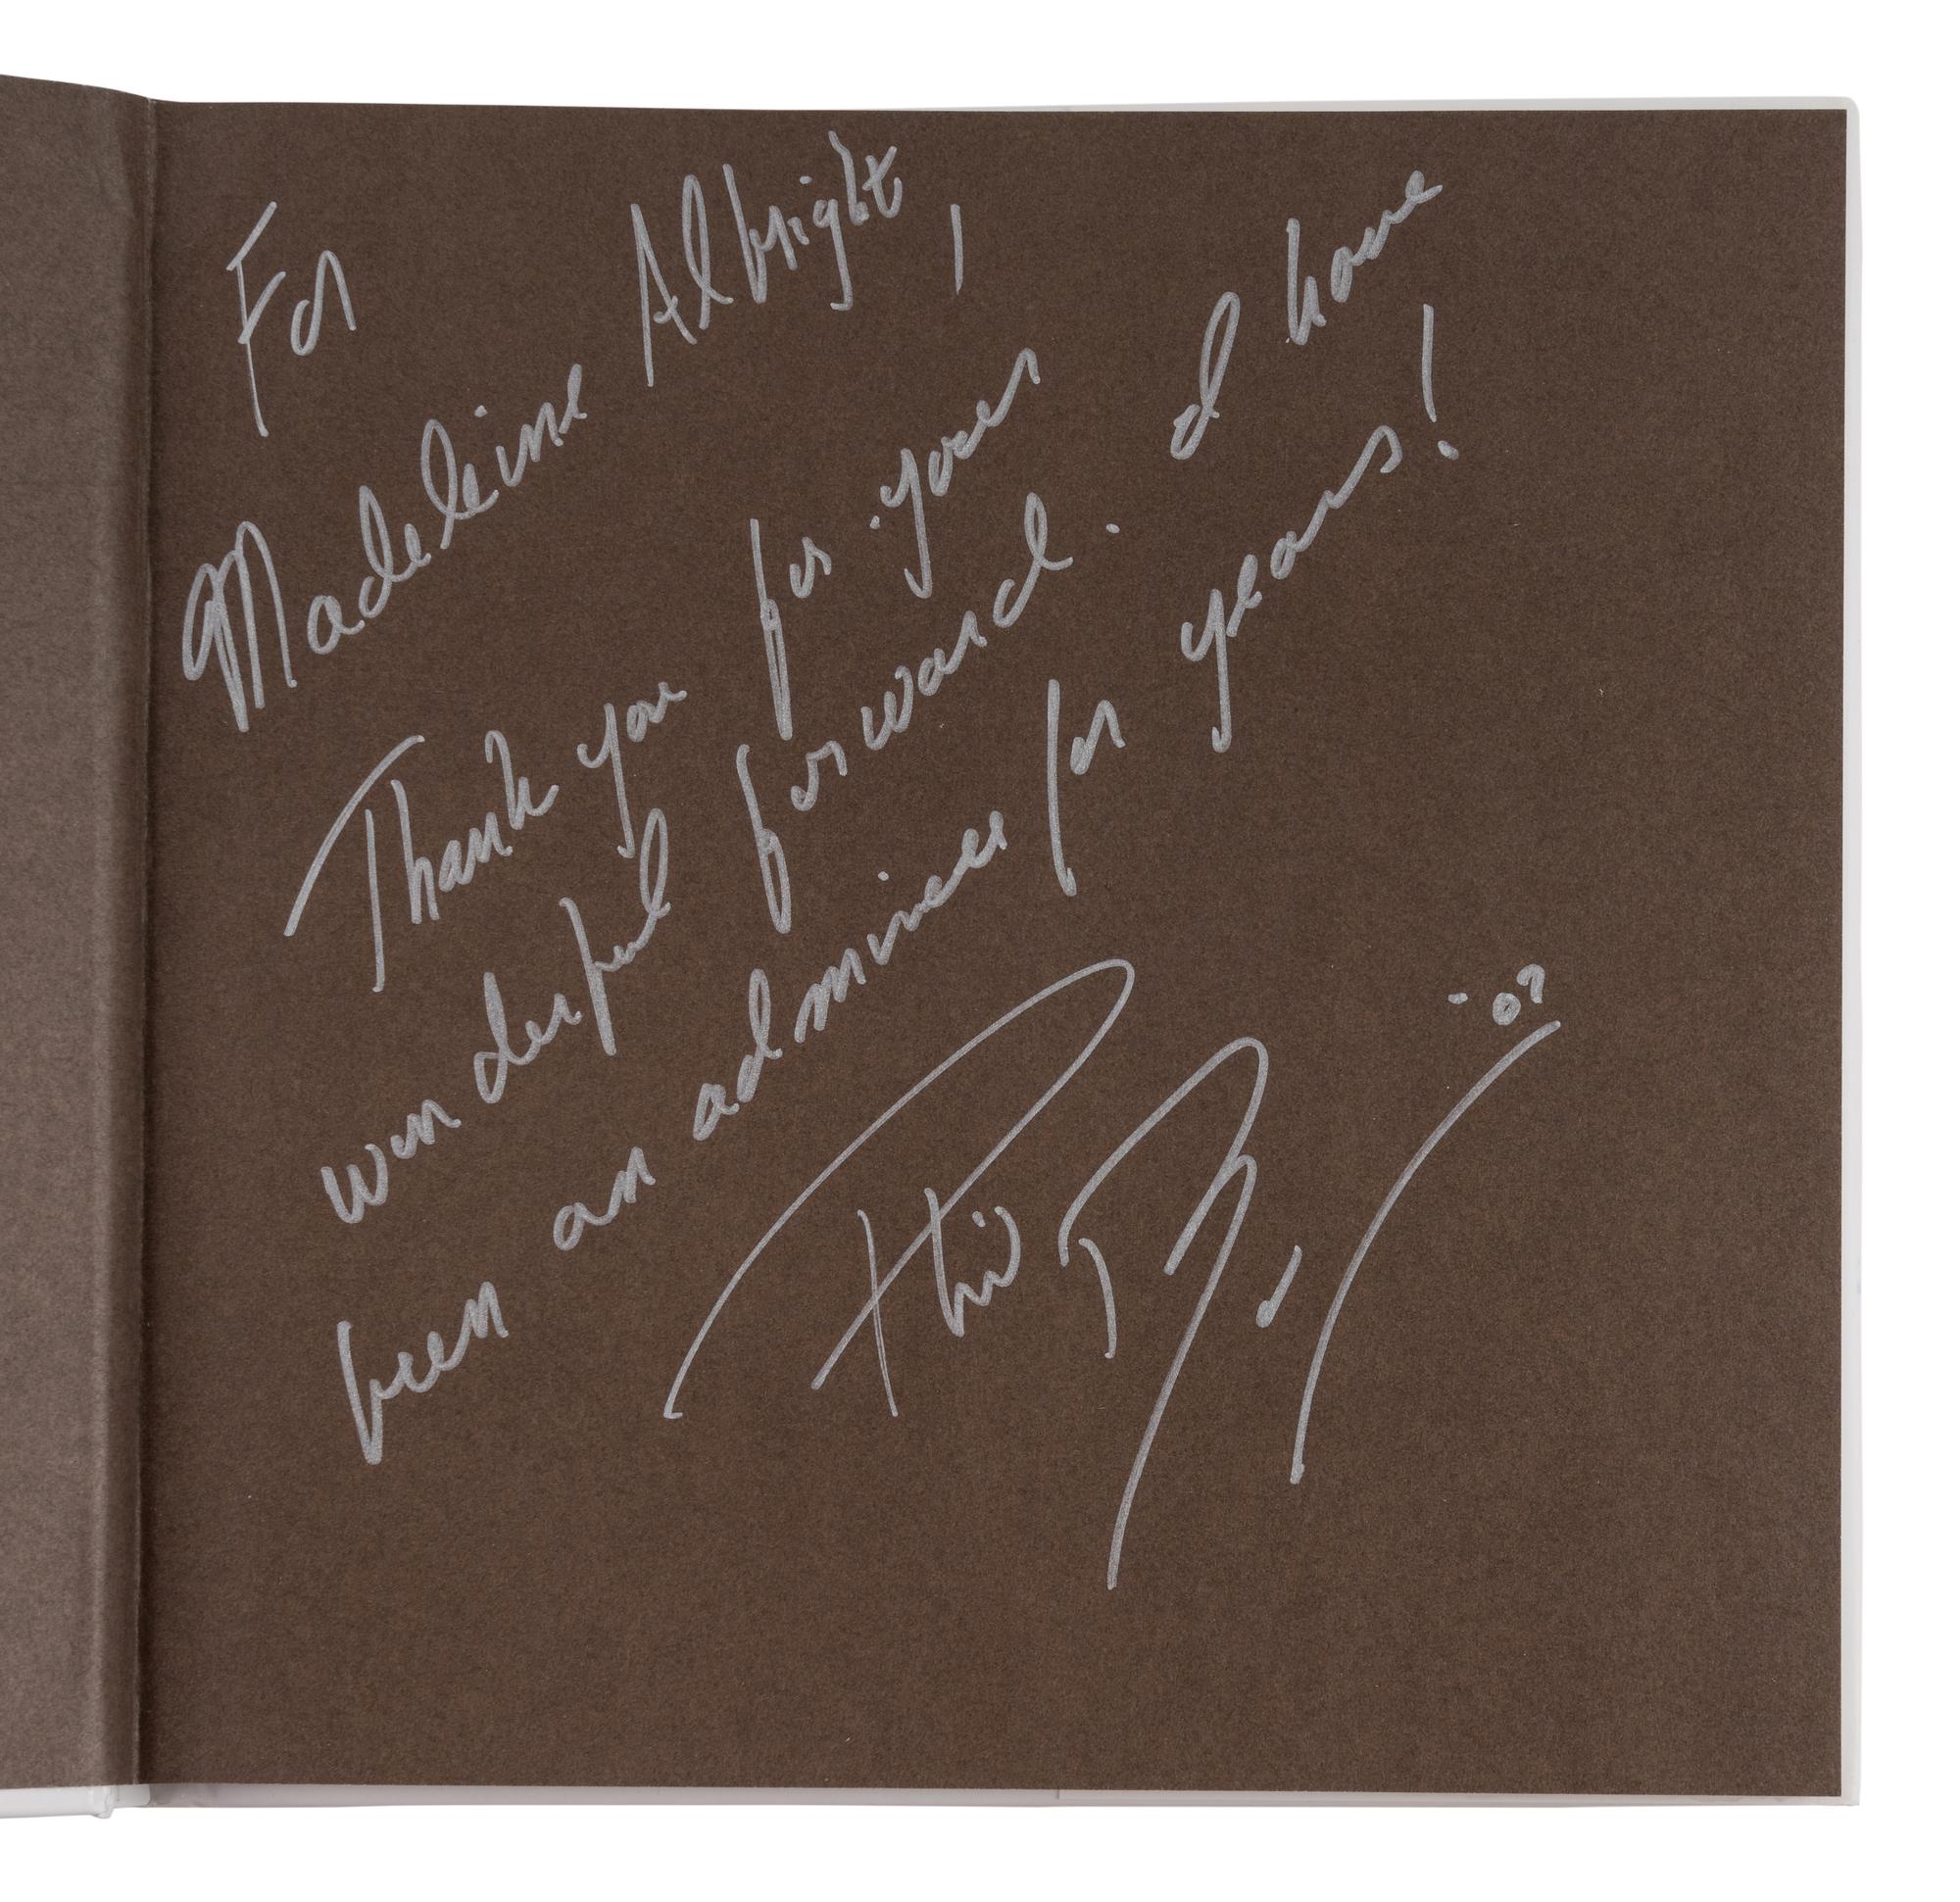 For
Madeleine Albright,
Thank you for your
wonderful forward. I have
been an admirer for years!
Phil '07